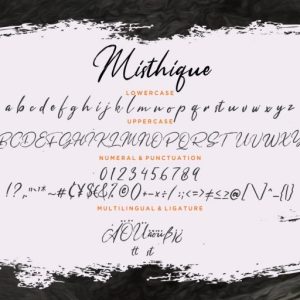 Misthique
LOWERCASE
a b c d e f g h i j k l m n o p q r s t u v w x y z
UPPERCASE
A B C D E F G H I J K L M N O P Q R S T U V W X Y Z
NUMERAL & PUNCTUATION
0 1 2 3 4 5 6 7 8 9
MULTILINGUAL & LIGATURE
tt st